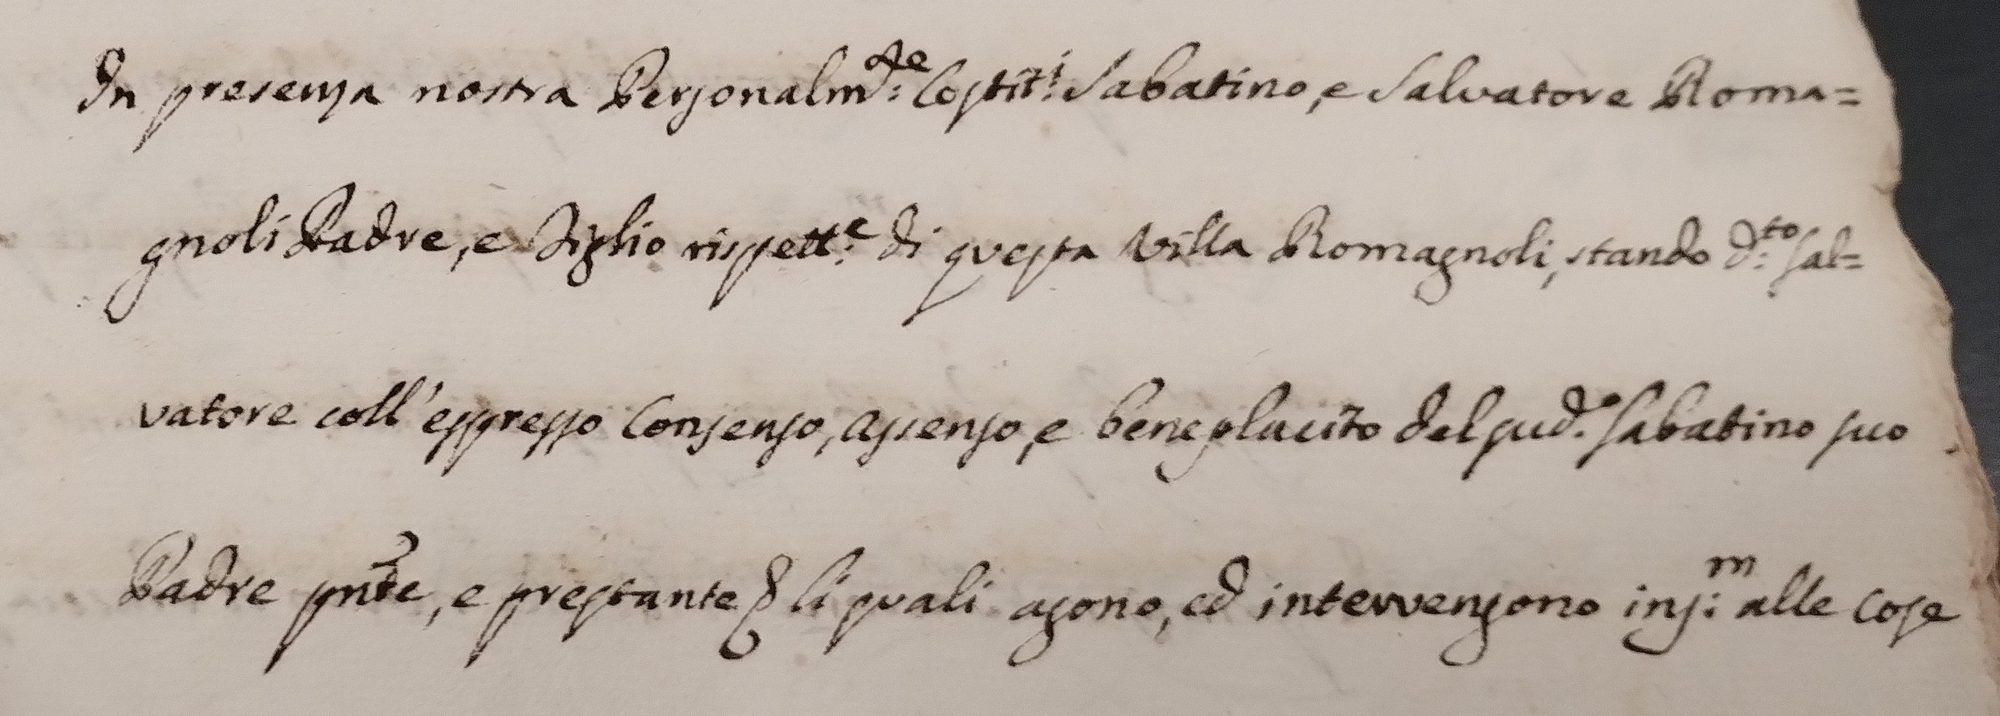 In presenza nostra Personalm.te Costit.i Sabatino, e Salvatore Roma=
gnoli Padre, e Figlio rispett.e di questa Villa Romagnoli, stando d.to Sal=
vatore coll'espresso Consenso, assenso, e beneplacito del sud.o Sabatino suo
Padre pnte, e prestante li quali agono, ed intervengono ins.m alle cose